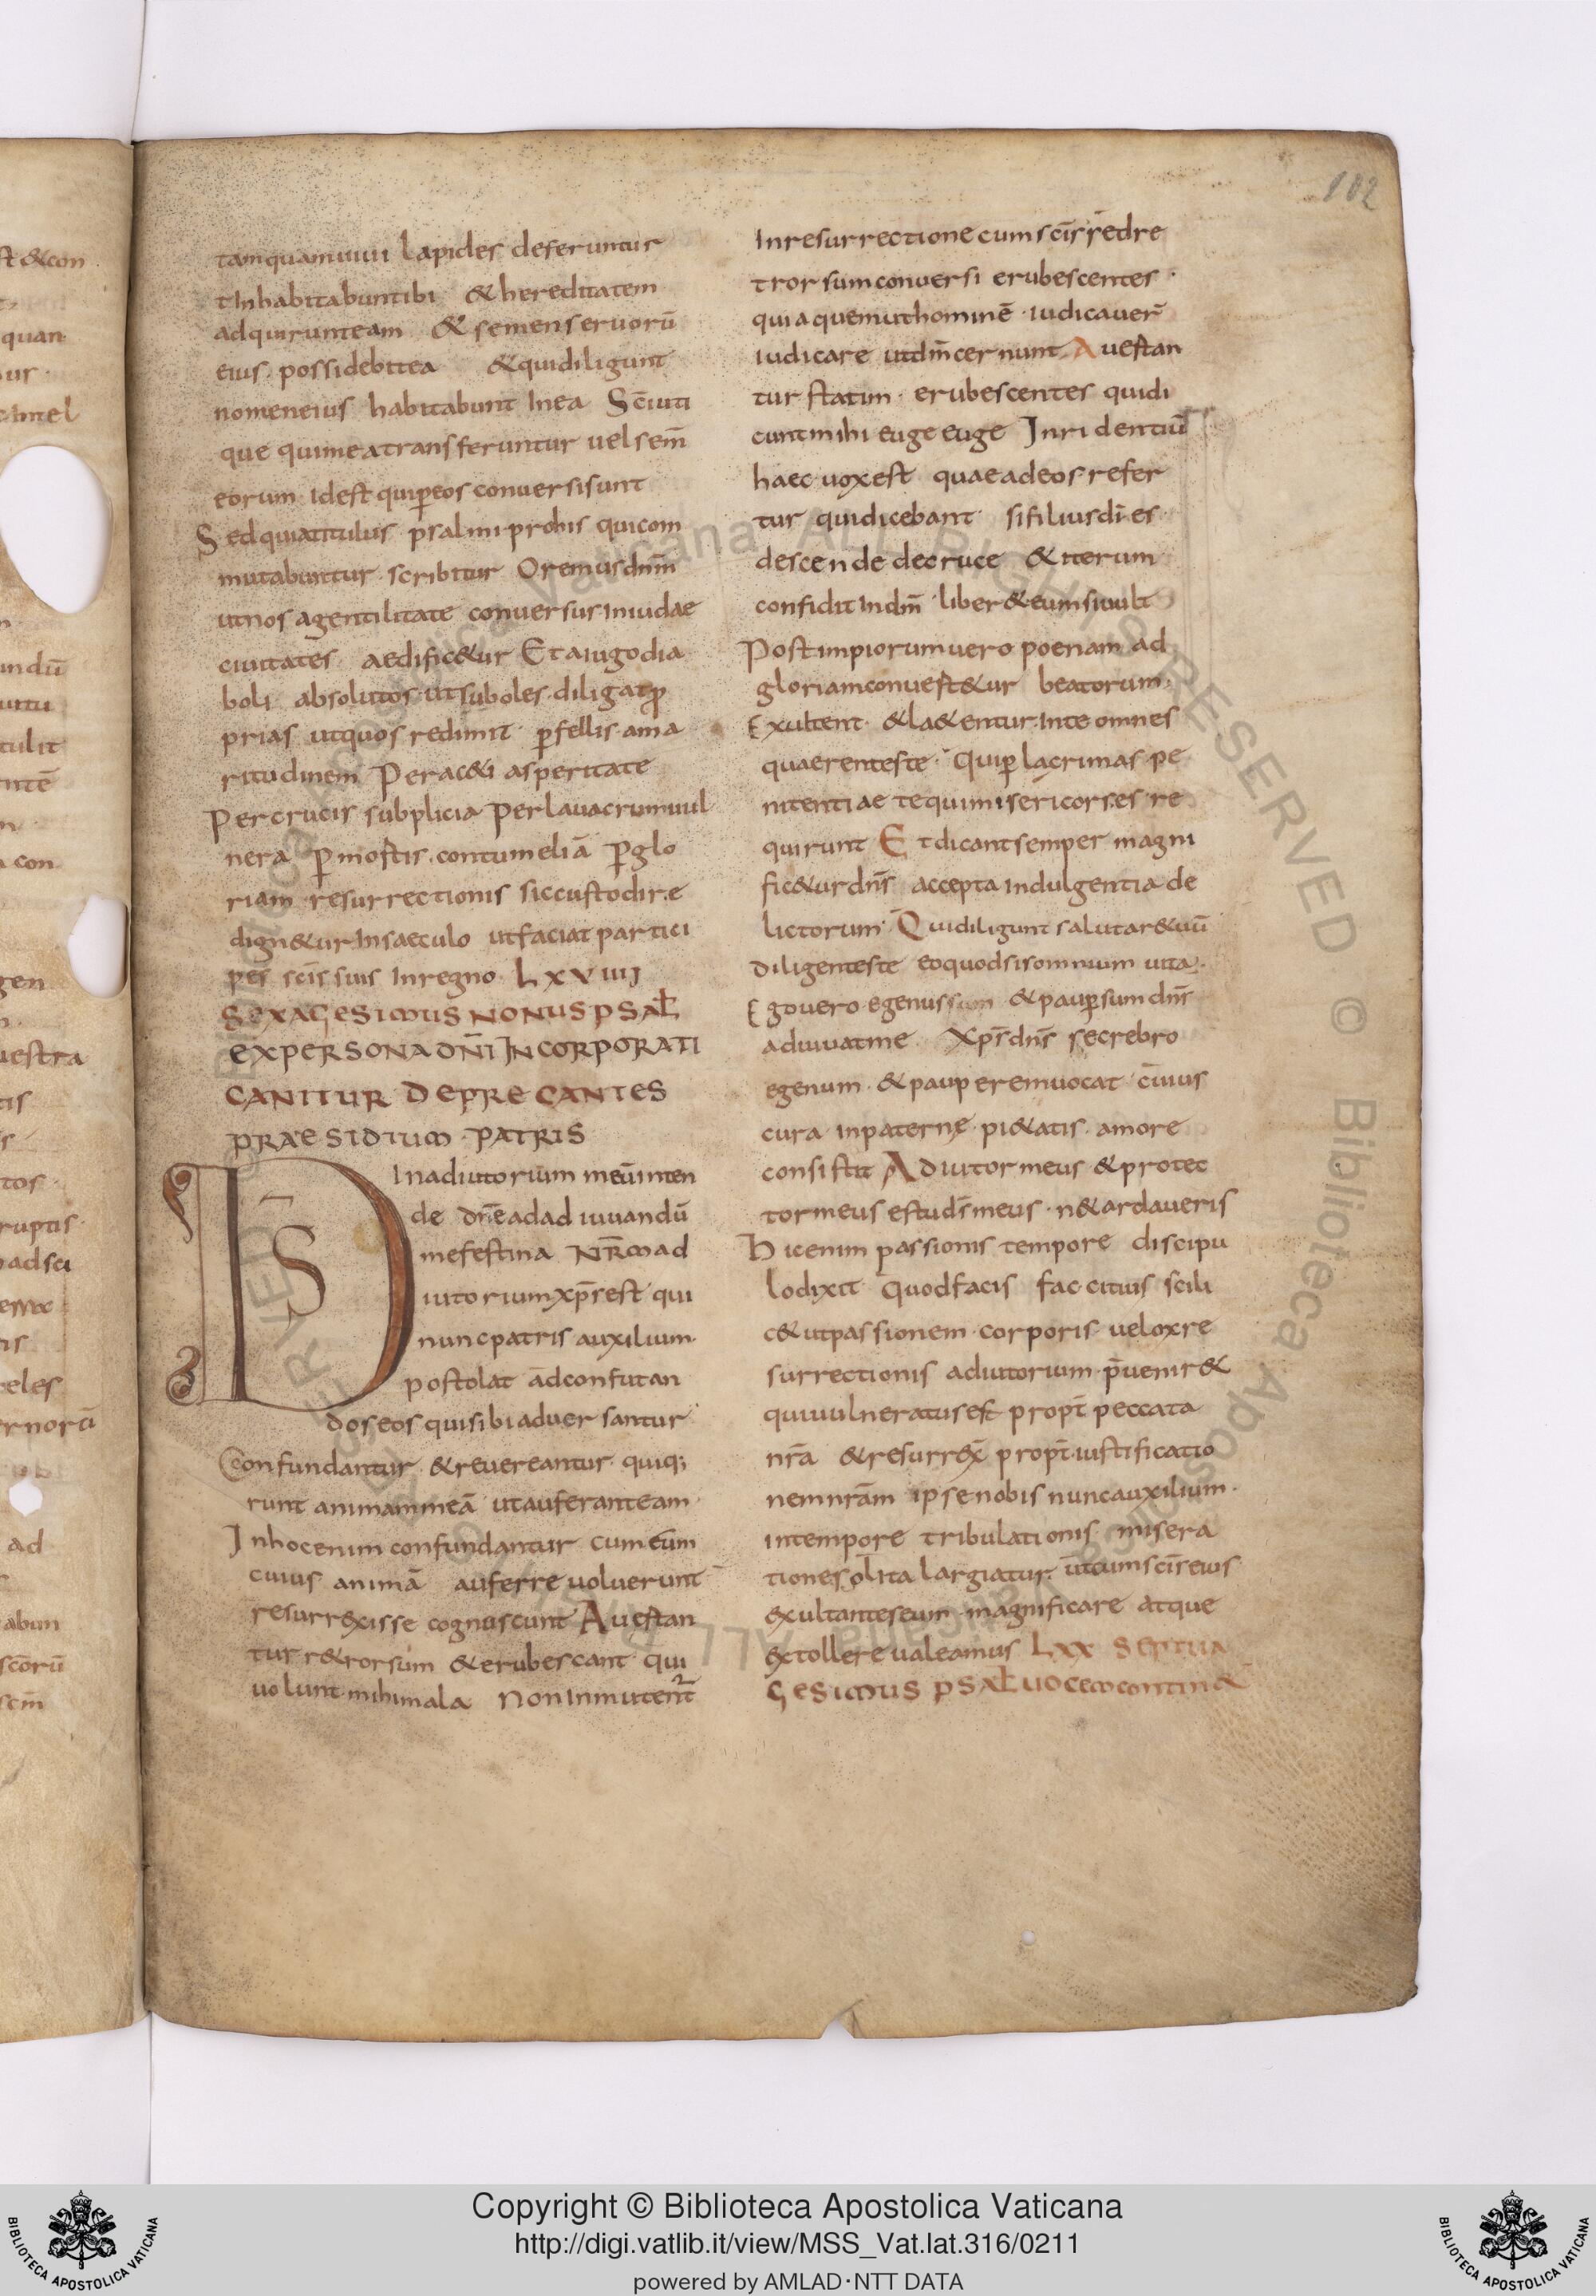 102
tamquamuiui lapides deferuntur
tInhabitabuntibi & hereditatem
adquirunteam & semen seruorū
eius possidebitea & quidiligunt
nomeneius habitabunt Inea Sc̄iuti
que quimeatransferuntur uelsem̄
eorum idest quiꝑeos conuersisunt
Sedquiatitulus psalmi probis quicom
mutabuntur scribitur Oremusdnm̄
utnos agentilitate conuersus Iniudae
ciuitates aedific&ur Etaiugodia
boli absolutos utsuboles diligat
prias utquos redimit ꝑfellis ama
ritudinem Perac&i asperitate
Percrucis subplicia Perlauacrumuul
nera Pmortis contumeliā Pglo
riam resurrectionis siccustodire
dign&ur Insaeculo utfaciat partici
pes scīs suis Inregno LXVIIII
SEXAGESIMUS NONUS PSAƚ
EXPERSONA DNI INCORPORATI
CANITUR DEPRECANTES
PRAESIDIUM PATRIS
DS̄ Inadiutorium meūinten
de dnēadadiuuandū
mefestina NR̄M ad
iutoriumxp̄sest qui
nuncpatris auxilium
postolat adconfutan
doseos quisibiaduersantur
Confundantur & reuereantur quiq;
runt animammeā utauferanteam
Inhocenim confundantur cumeum
cuius animā auferre uoluerunt
resurrexisse cognuscunt Auertan
tur r&rorsum & erubescant qui
uolunt mihimala Noninmutent
Inresurrectione cumscīs redre
trorsumconuersi erubescentes
quiaquemuthominē iudicauer̄
iudicare utdm̄cernunt Auertan
tur statim erubescentes quidi
cuntmihi euge euge Inridentiū
haec uoxest quaeadeosrefer
tur quidicebant sifiliusdīes
descendedecruce & iterum
confidit Indm̄ liber&eumsiuult
Postimpiorumuero poenam ad
gloriamconuert&ur beatorum
Exultent & la&entur Inte omnes
quaerenteste Quiꝑ lacrimas pe
nitentiae tequimisericorses re
quirunt Etdicantsemper magni
fic&urdns̄ accepta indulgentia de
lictorum Quidiligunt salutar&uū
diligenteste eoquodsisomnium uita
Egouero egenussum & pauꝑsumdns̄
adiuuatme Xps̄dns̄ secrebro
egenum & pauperemuocat cuius
cura inpaternę pi&atis amore
consistit Adiutor meus & protec
tormeus estuds̄meus n&ardaueris
Hicenim passionis tempore discipu
lodixit Quodfacis fac citius scili
c&utpassionem corporis ueloxre
surrectionis adiutorium p̄uenir&
quiuulneratusest propt̄ peccata
nr̄a & resurrex̄ propt̄iustificatio
nemnrām ipsenobis nuncauxilium
intempore tribulationis misera
tionesolita largiatur utcumscīseius
exultanteseum magnificare atque
extollere ualeamus LXX SEPTUA
GESIMUS PSAƚ UOCEMcontin&
Copyright © Biblioteca Apostolica Vaticana
http://digi.vatlib.it/view/MSS_Vat.lat.316/0211
powered by AMLAD·NTT DATA